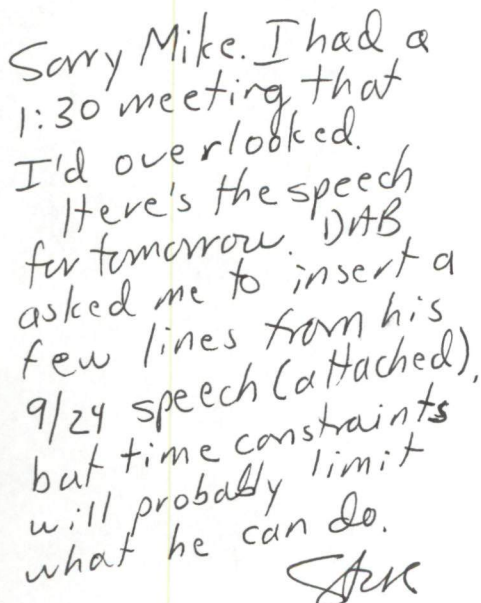 Sorry Mike. I had a
1:30 meeting that
I'd overlooked.
Here's the speech
for tomorrow. DAB
asked me to insert a
few lines from his
9/24 speech (attached),
but time constraints
will probably limit
what he can do.